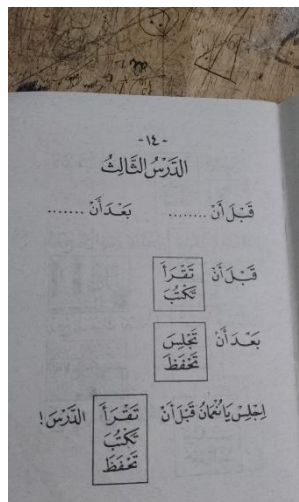 -١٤-
الدَّرْسُ الثَّالِثُ
قَبْلَ أَنْ ........ بَعْدَ أَنْ .......
قَبْلَ أَنْ تَقْرَأَ
تَكْتُبَ
بَعْدَ أَنْ تَجْلِسَ
تَحْفَظَ
اِجْلِسْ يَا نُعْمَانُ قَبْلَ أَنْ تَقْرَأَ الدَّرْسَ!
تَكْتُبَ
تَحْفَظَ